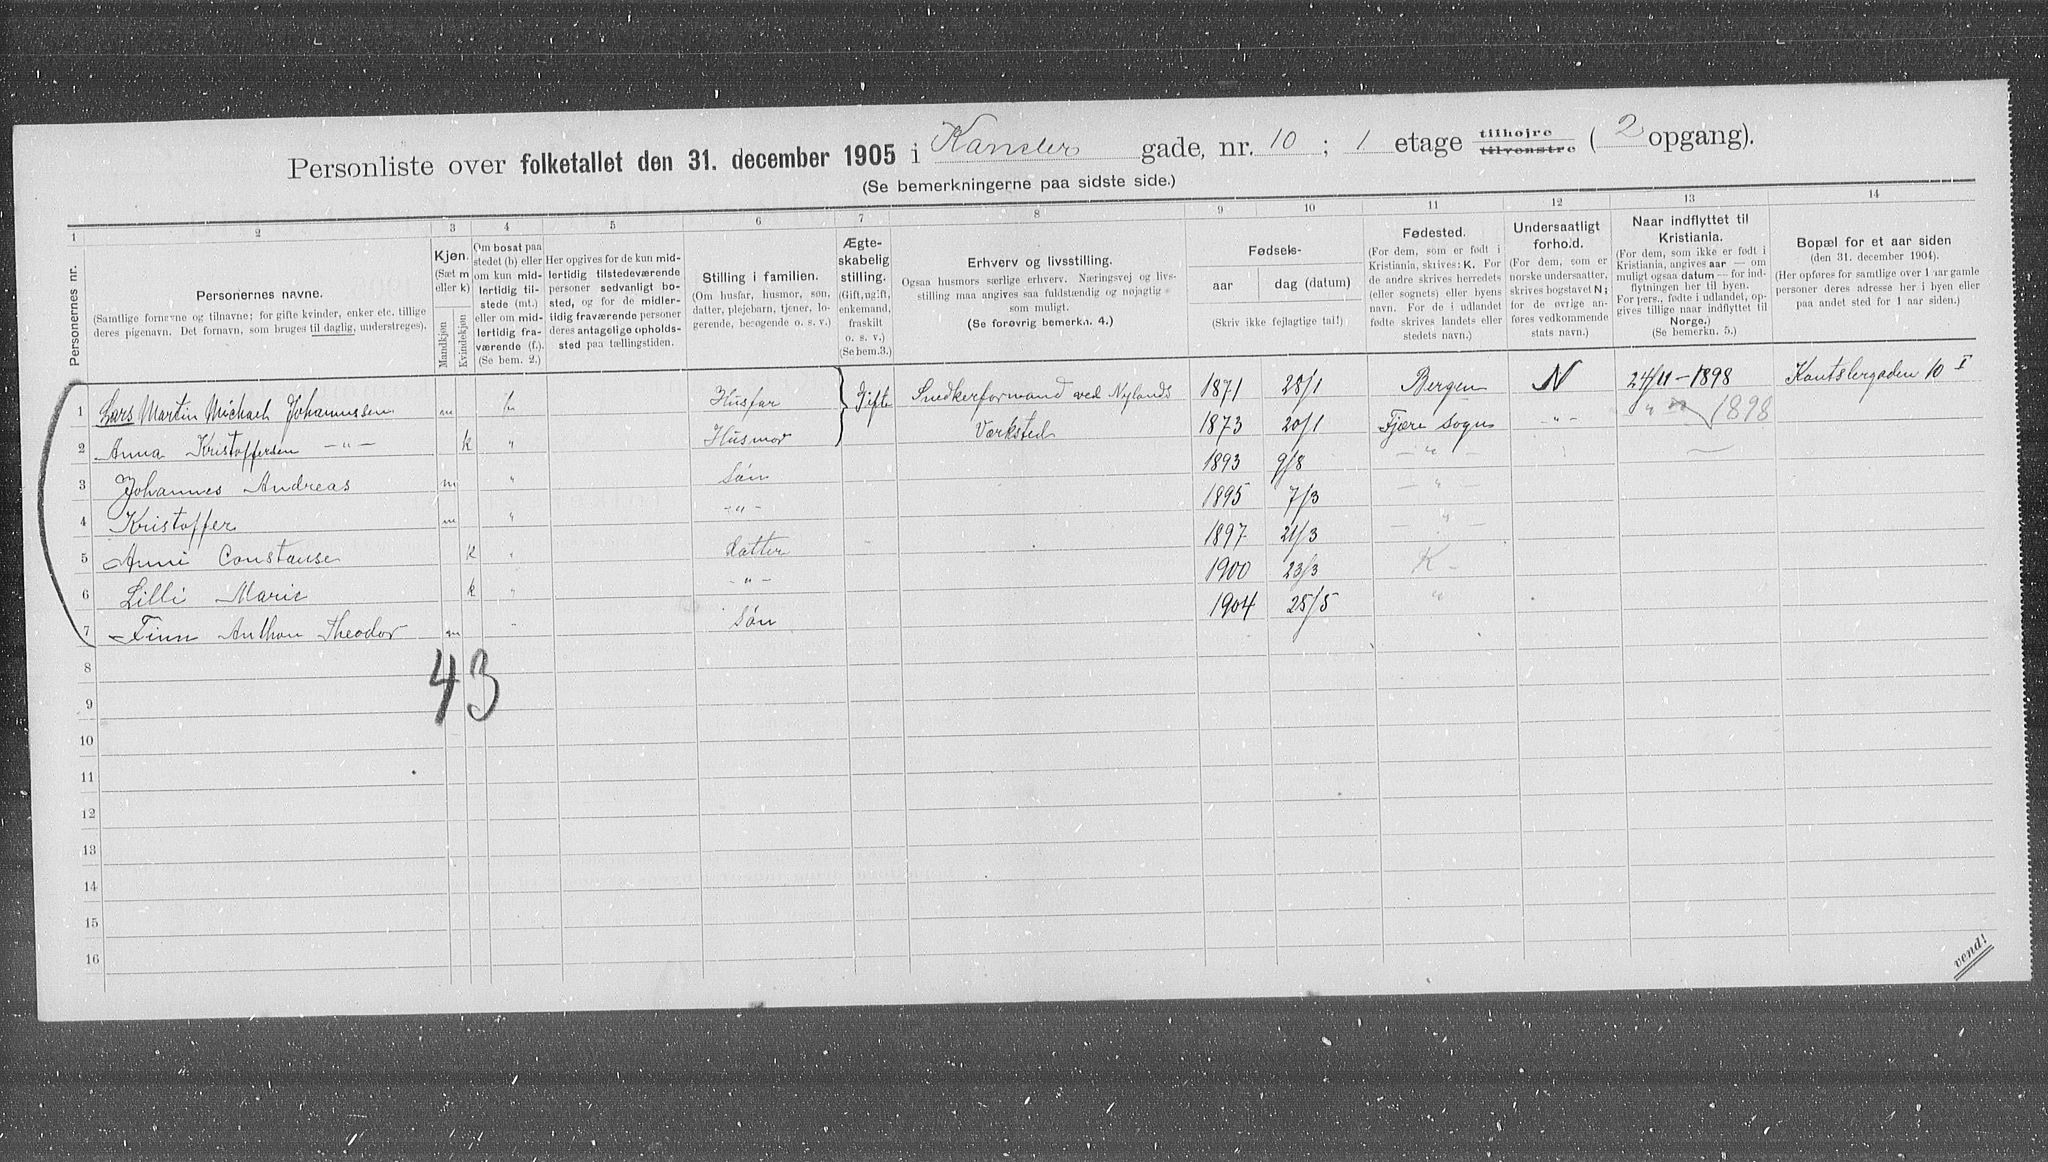 Personliste over folketallet den 31. december 1905 i Kansler gade, nr. 10 ; 1 etage tilhøjre tilvenstre ( 2 opgang).
(Se bemerkningerne paa sidste side.)
1 2 3 4 5 6 7 8 9 10 11 12 13 14
Personernes nr.
Personernes navne.
(Samtlige fornavne og tilnavne; for gifte kvinder, enker etc. tillige
deres pigenavn. Det fornavn, som bruges til daglig, understreges).
Kjøn.
(Sæt m
eller k)
Mandkjøn
Kvindekjøn
Om bosat paa
stedet (b) eller
om kun mid-
lertidig til-
stede (mt.)
eller om mid-
lertidig fra-
værende (f.).
(Se bem. 2.)
Her opgives for de kun mid-
lertidig tilstedeværende
personer sedvanligt bo-
sted, og for de midler-
tidig fraværende personer
deres antagelige opholds-
sted paa tællingstiden.
Stilling i familien.
(Om husfar, husmor, søn,
datter, plejebarn, tjener, lo-
gerende, besøgende o. s. v.)
Ægte-
skabelig
stilling.
(Gift, ugift,
enkemand,
fraskilt
o. s. v.)
(Se bem.3.)
Erhverv og livsstilling.
Ogsaa husmors særlige erhverv. Næringsvej og livs-
stilling maa angives saa fuldstændig og nøjagtig
som muligt.
(Se forøvrig bemerkn. 4.)
Fødsels-
aar dag (datum)
(Skriv ikke fejlagtige tal!)
Fødested.
(For dem, som er født i
Kristiania, skrives: K. For
de andre skrives herredets
(eller sognets) eller byens
navn. For de i udlandet
fødte skrives landets eller
stedets navn.)
Undersaatligt
forhold.
(For dem, som er
norske undersaatter,
skrives bogstavet N;
for de øvrige an-
føres vedkommende
stats navn.)
Naar indflyttet til
Kristiania.
(For dem, som ikke er født i
Kristiania, angives aar — om
muligt ogsaa datum — for ind-
flytningen her til byen.
For pers., fødte i udlandet, op-
gives tillige naar indflyttet til
Norge.)
(Se bemerkn. 5.)
Bopæl for et aar siden
(den 31. december 1904).
(Her opføres for samtlige over 1 aar gamle
personer deres adresse her i byen eller
paa andet sted for 1 aar siden.)
1 Lars Martin Michael Johannessen m b Husfar Gift Snedkerformand ved Nylands 1871 28/1 Bergen N 24/11 – 1898 Kantslergaden 10 I
2 Anna Kristoffersen – " – k " Husmor Værksted 1873 20/1 Fjære Sogn – " – " 1898
3 Johannes Andreas m " Søn 1893 9/8 – " –
4 Kristoffer m " – " – 1895 7/3 – " –
5 Anni Constanse k " datter 1897 21/3 – " –
6 Lilli Marie k " – " – 1900 23/3 K –
7 Finn Anthon Theodor m " Søn 1904 25/5 "
8
43
9
10
11
12
13
14
15
16
vend!